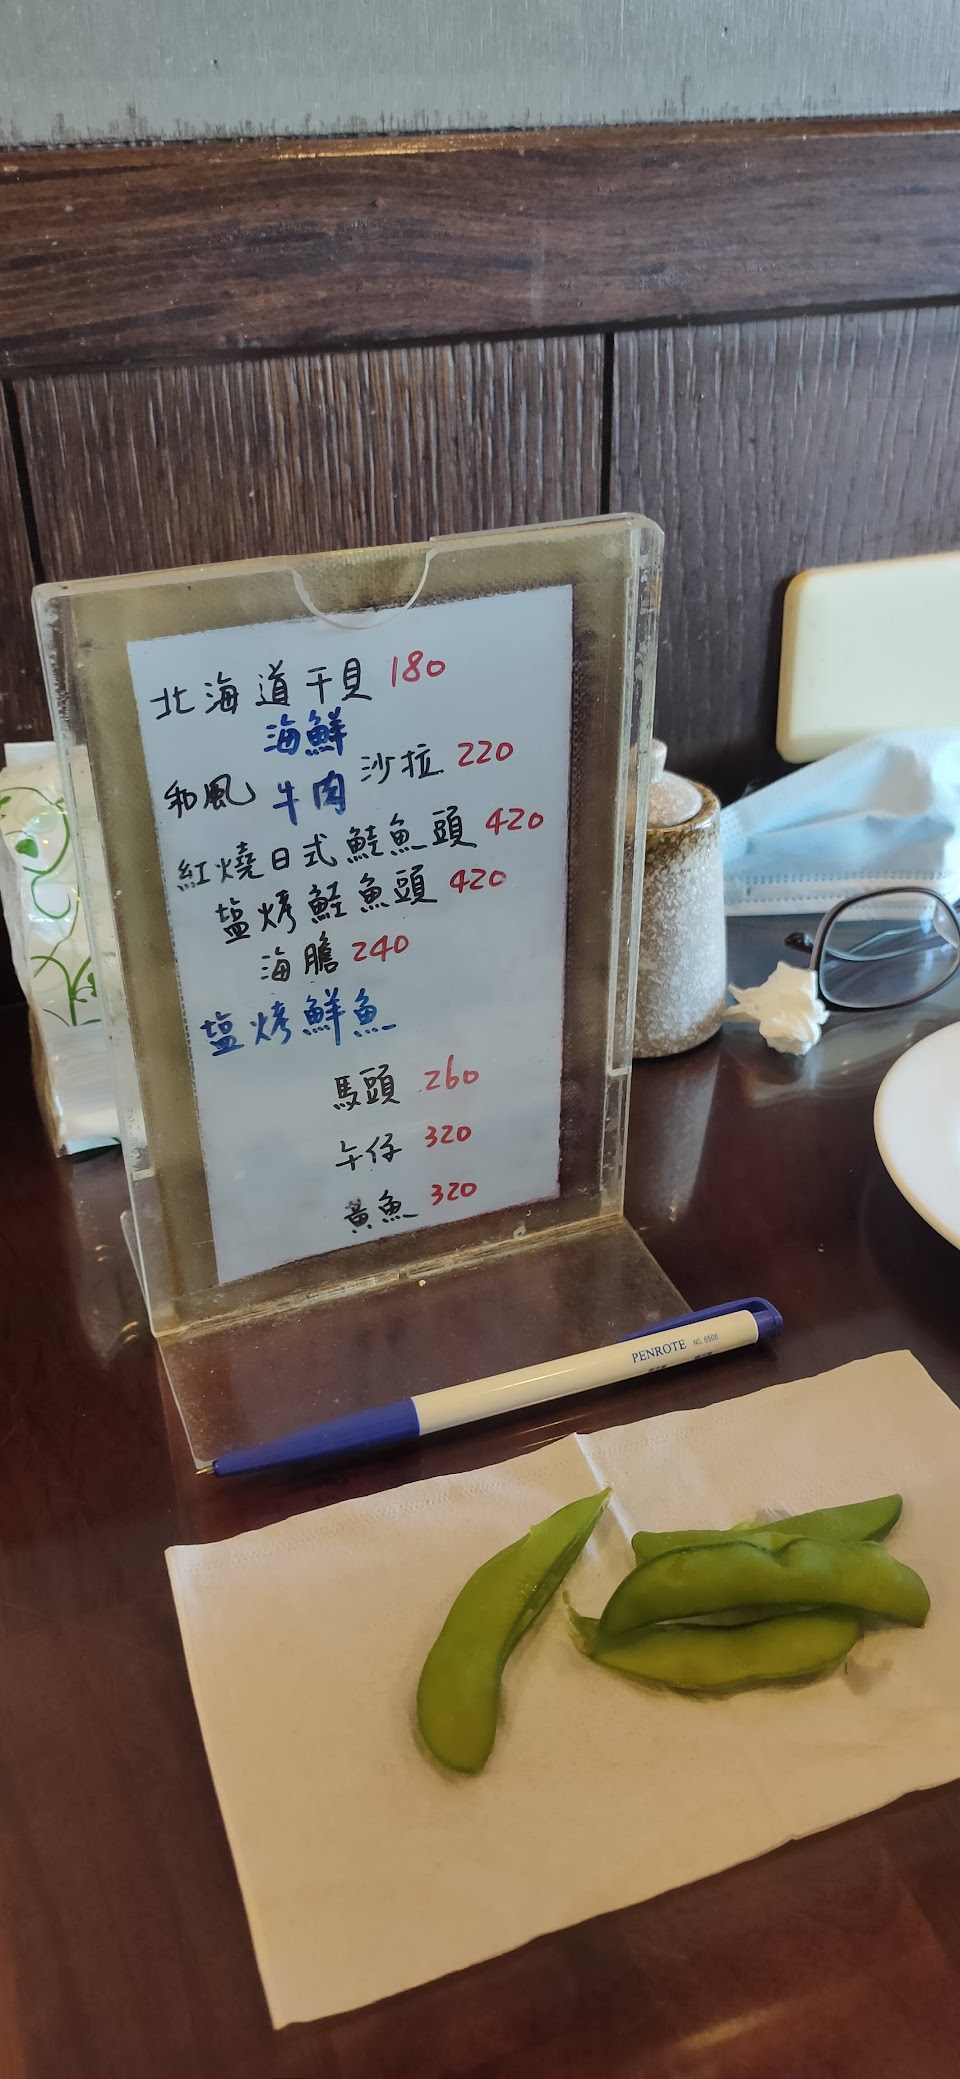 北海道干貝 180
海鮮
和風 沙拉 220
牛肉
紅燒日式鮭魚頭 420
塩烤鮭魚頭 420
海膽 240
塩烤鮮魚
馬頭 260
午仔 320
黃魚 320
PENROTE NO. 6506